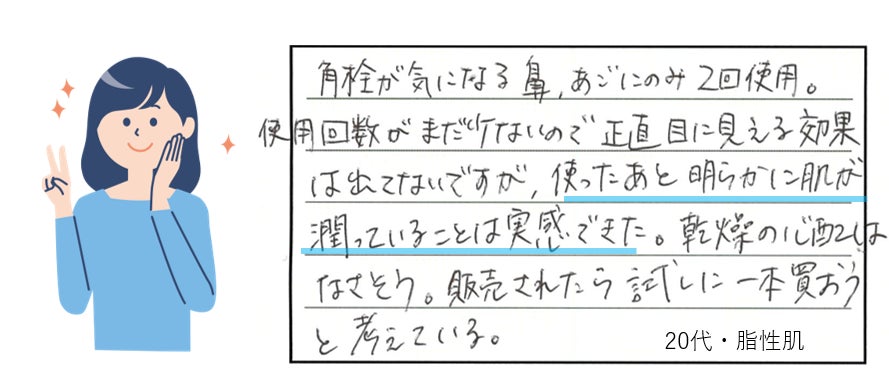 角栓が気になる鼻、あごにのみ2回使用。
使用回数がまだ少ないので正直目に見える効果
は出てないですが、使ったあと明らかに肌が
潤っていることは実感できた。乾燥の心配は
なさそう。販売されたら試しに一本買おう
と考えている。
20代・脂性肌